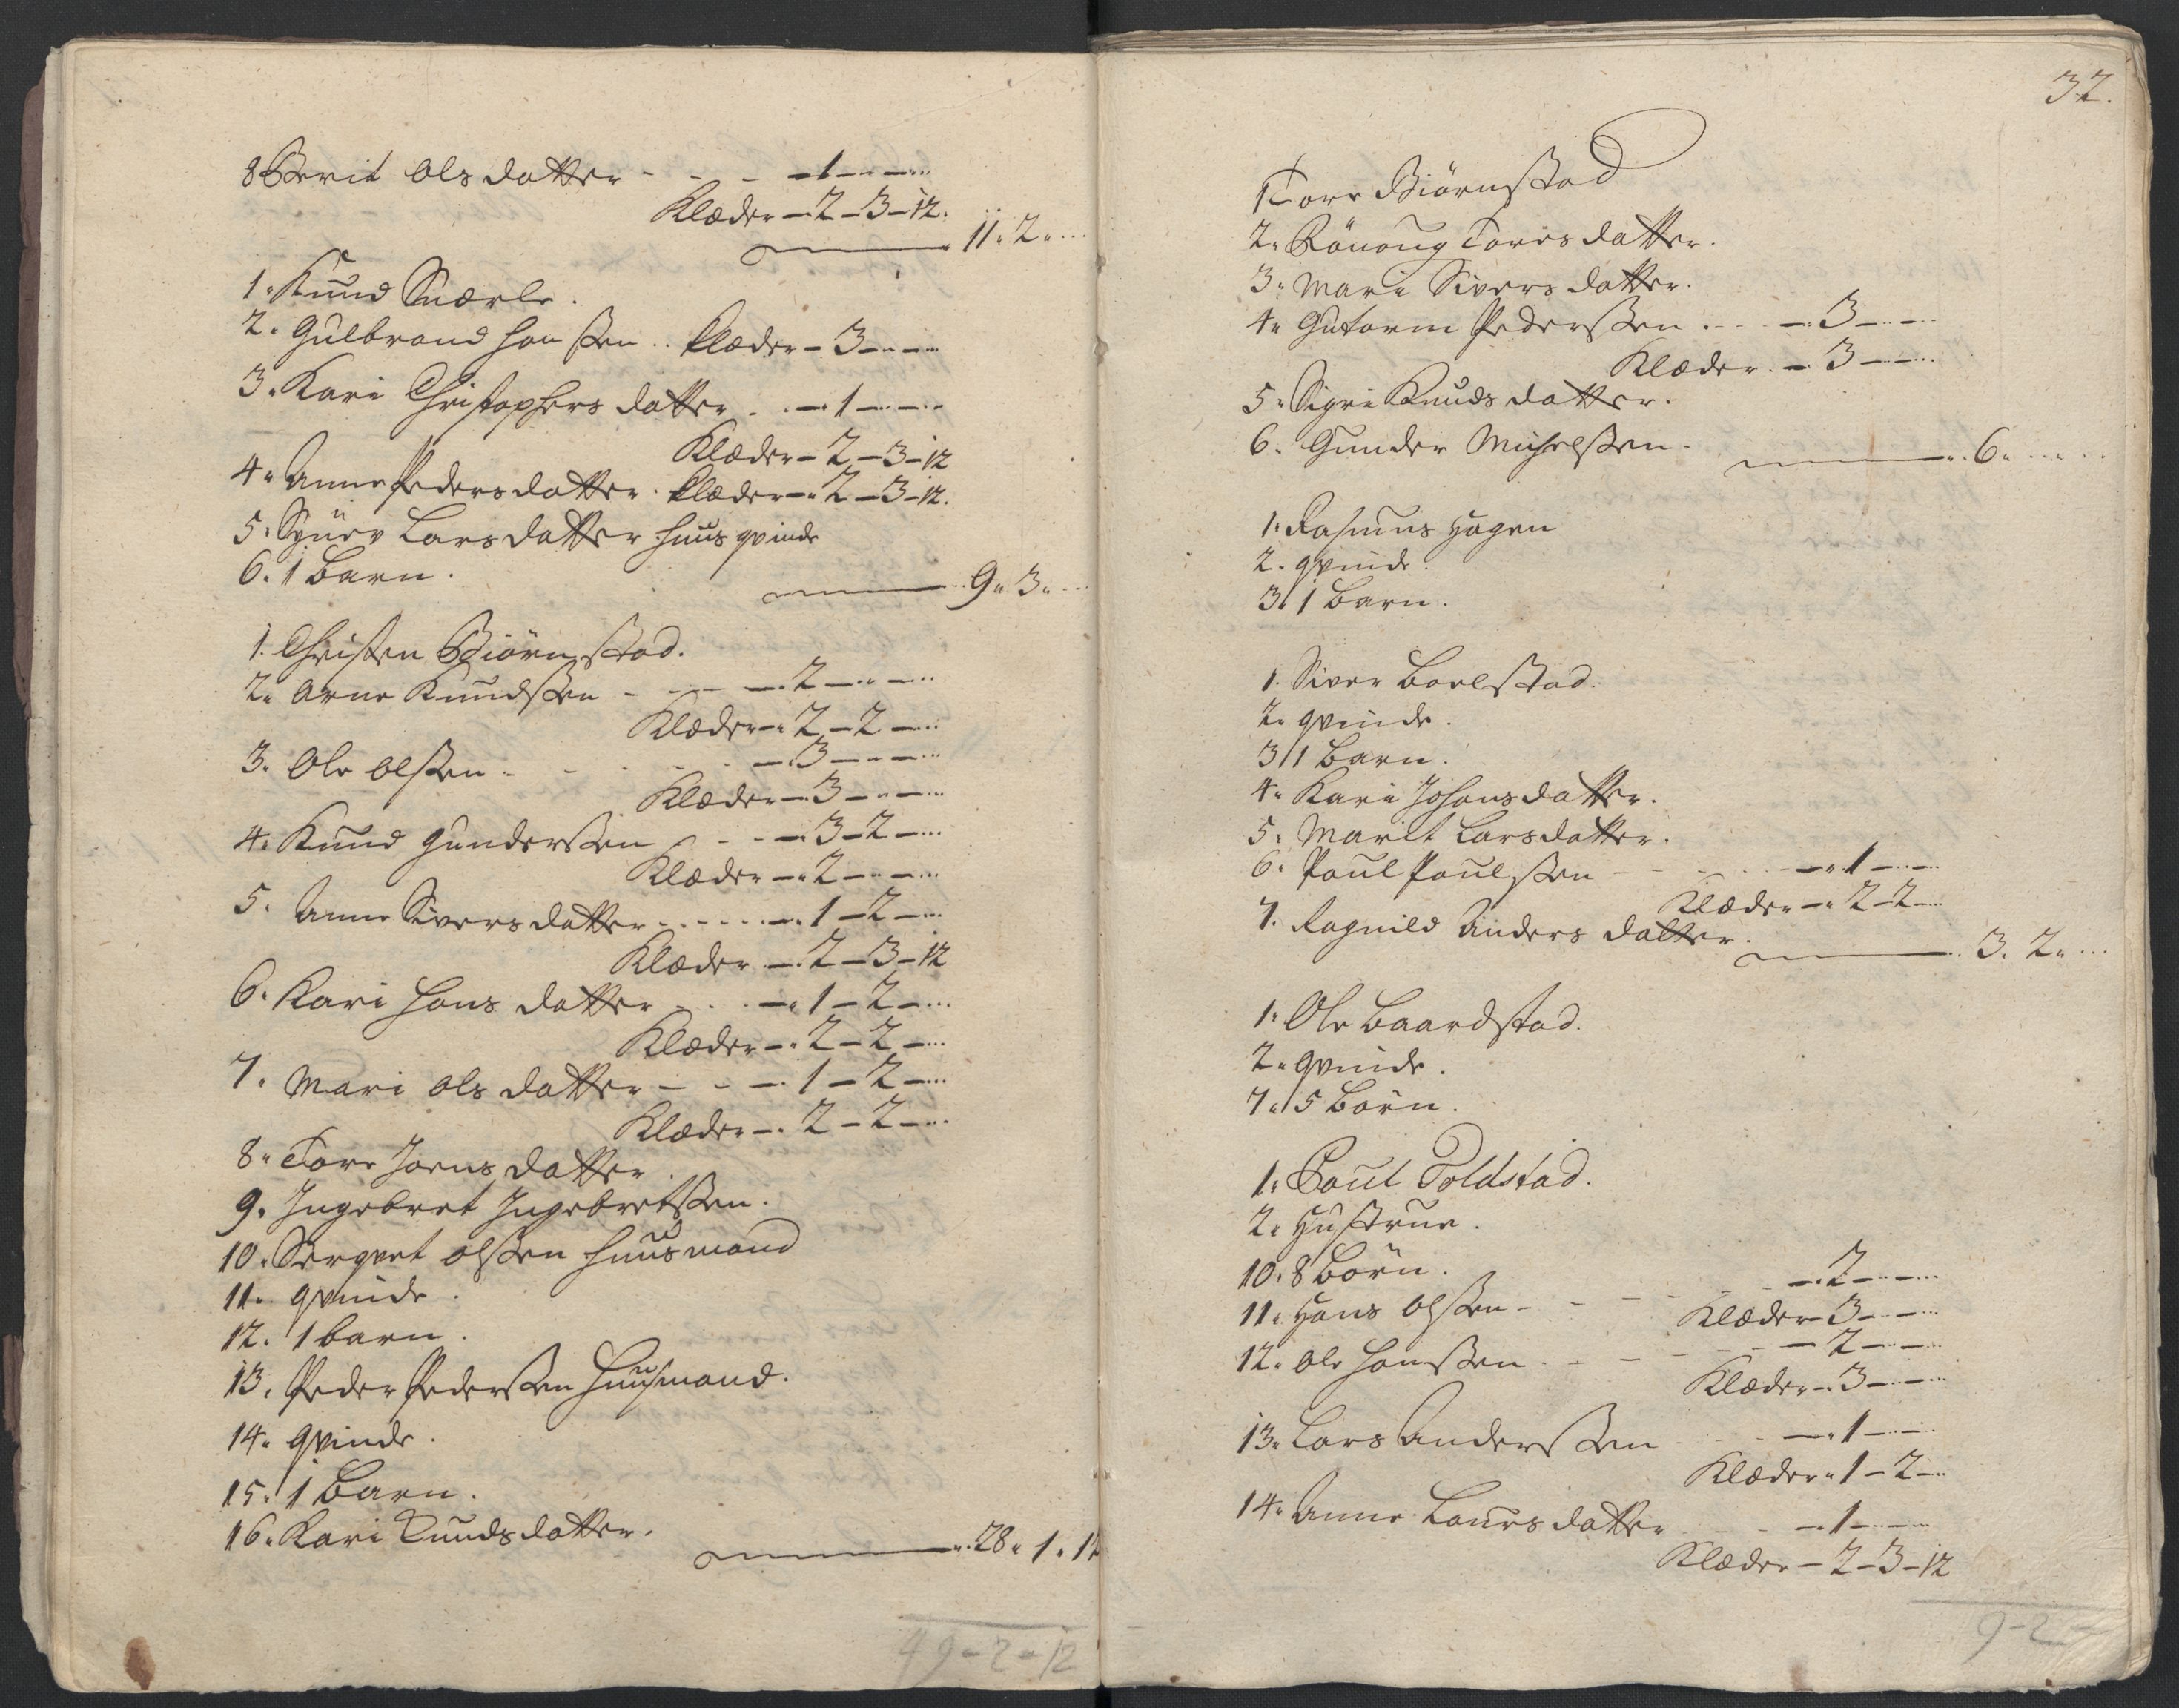 8 Berit Olsdatter - - - - 1 - - -
Klæder - 2 - 3 - 12.
11. 2. -
1. Knud Snerle.
2. Gulbrand Hanssen .. Klæder - 3 - - -
3. Kari Christophersdatter . . - 1 - - -
Klæder - 2 - 3 - 12
4. Anne Pedersdatter. Klæder - 2 - 3 - 12.
5. Larsdatter huusqvinde
6. 1 Barn.
9. 3. -
1. Christen Biørnstad.
2. Arne Knudssen - - - 2 - - -
Klæder - 2 - 2 - -
3. Ole Olssen - - - 3 - - -
Klæder - 3 - - -
4. Knud Gunderssen - - 3 - 2 - -
Klæder - 2 - - -
5. Anne Siversdatter - - - - 1 - 2 - -
Klæder - 2 - 3 - 12
6. Kari Hansdatter - . . - 1 - 2 - -
Klæder - 2 - 2 - -
7. Mari Olsdatter - - - 1 - 2 - -
Klæder - 2 - 2 - -
8. Tore Joensdatter
9. Ingebret Ingebretssen.
10. Sergvet Olssen huusmand
11. qvinde.
12. 1 barn.
13. Peder Pederssen Huusmand.
14. Qvinde.
15. 1 Barn.
16. Kari Knudsdatter.
28. 1. 12
49 - 2 - 12
32.
1 Tore Biørnstad
2. Rönoug Toresdatter.
3. Mari Siversdatter.
4. Gutorm Pederssen . - - - 3 - - -
Klæder. - 3 - - -
5. Sigri Knudsdatter.
6. Gunder Michelssen.
6. -
1. Rasmus Hagen
2. qvinde.
3. 1 Barn.
1. Siver Boelstad.
2. qvinde.
3. 1 Barn.
4. Kari Johansdatter.
5. Marit Larsdatter.
6. Poul Poulssen - - - - 1 - - -
Klæder - 2 - 2 - -
7. Ragnild Andersdatter.
3. 2. -
1. Ole Baardstad.
2. qvinde.
7. 5 Börn.
1. Poul Toldstad.
2. Hustrue.
10. 8 Börn.
11. Hans Olssen - - - - 2 - - -
Klæder - 3 - - -
12. Ole Hanssen . - - - 2 - - -
Klæder - 3 - - -
13. Lars Anderssen - - 1 - - -
Klæder - 1 - 2 - -
14. Anne Laursdatter - - 1 - - -
Klæder - 2 - 3 - 12
9 - 2 -